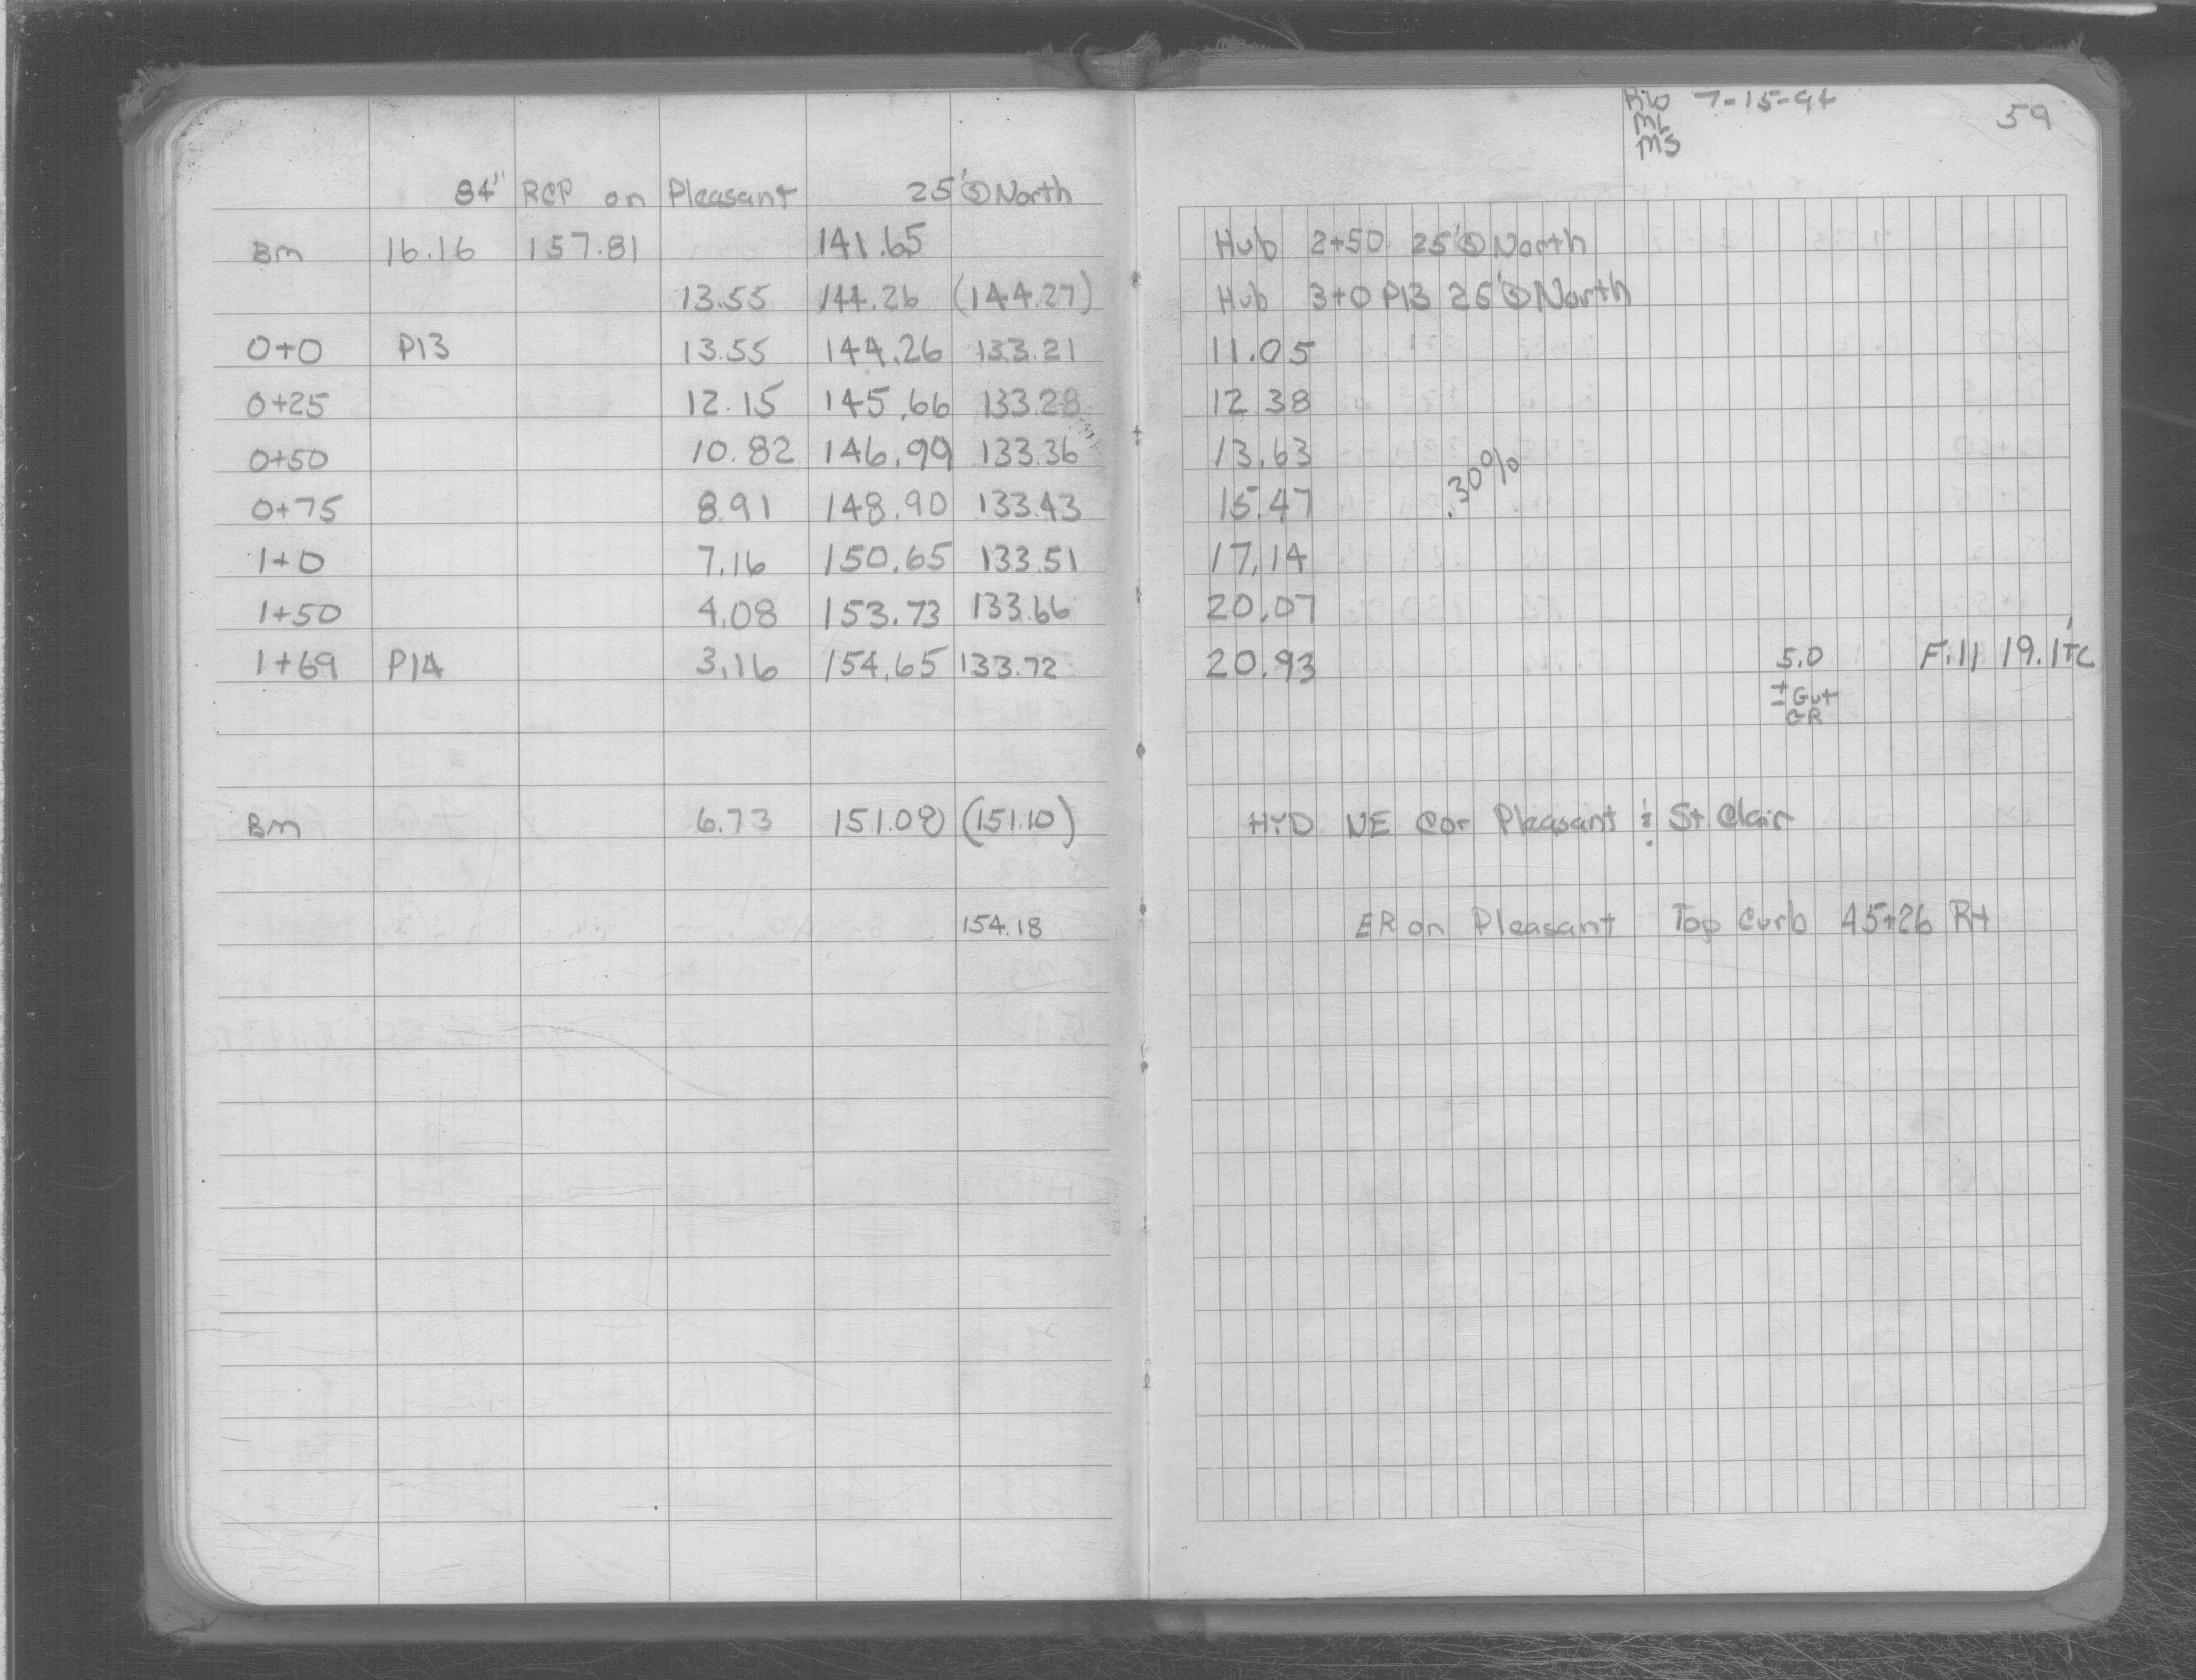 7-15-94
ML
MS
59
84" RCP on Pleasant 25' North
Bm 16.16 157.81 141.65 Hub 2+50 25' North
13.55 144.26 (144.27) Hub 3+0 P13 25' North
0+0 P13 13.55 144.26 133.21 11.05
0+25 12.15 145.66 133.28 12.38
0+50 10.82 146.99 133.36 13.63
.30%
0+75 8.91 148.90 133.43 15.47
1+0 7.16 150.65 133.51 17.14
1+50 4.08 153.73 133.66 20.07
1+69 P14 3.16 154.65 133.72 20.93 5.0 Fill 19.1 TC
± Gut
GR
Bm 6.73 151.08 (151.10) HYD NE Cor Pleasant & St Clair
154.18 ER on Pleasant Top Curb 45+26 Rt